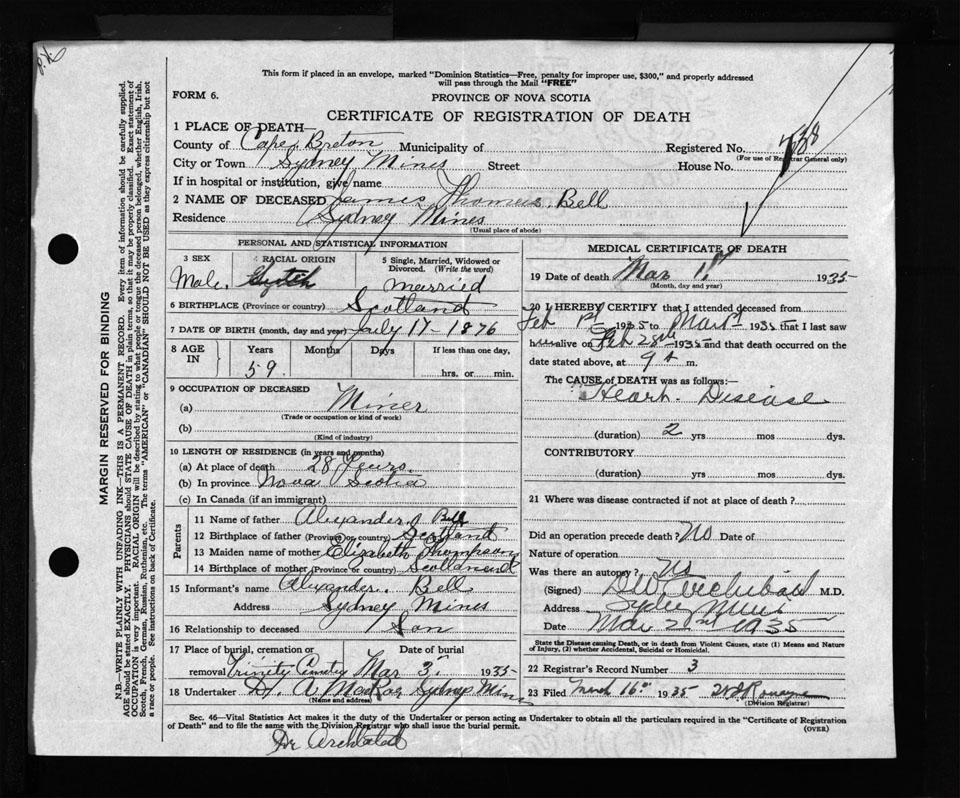 This form if placed in an envelope, marked "Dominion Statistics—Free, penalty for improper use, $300," and properly addressed
will pass through the Mail "FREE"
FORM 6.
PROVINCE OF NOVA SCOTIA
CERTIFICATE OF REGISTRATION OF DEATH
1 PLACE OF DEATH—
County of Cape Breton Municipality of Registered No.
(For use of Registrar General only)
City or Town Sydney Mines Street House No.
If in hospital or institution, give name
2 NAME OF DECEASED James Thomas Bell
Residence Sydney Mines
(Usual place of abode)
PERSONAL AND STATISTICAL INFORMATION
3 SEX 4 RACIAL ORIGIN 5 Single, Married, Widowed or
Divorced. (Write the word)
Male. married
6 BIRTHPLACE (Province or country) Scotland
7 DATE OF BIRTH (month, day and year) July 17 - 1876
8 AGE IN Years Months Days If less than one day,
59 hrs. or min.
9 OCCUPATION OF DECEASED
(a) Miner
(Trade or occupation or kind of work)
(b)
(Kind of industry)
10 LENGTH OF RESIDENCE (in years and months)
(a) At place of death 28 Years.
(b) In province Nova Scotia
(c) In Canada (if an immigrant)
Parents
11 Name of father Alexander Bell
12 Birthplace of father (Province or country) Scotland
13 Maiden name of mother Elizabeth Thompson
14 Birthplace of mother (Province or country) Scotland
15 Informant's name Alexander. Bell
Address Sydney Mines
16 Relationship to deceased Son
17 Place of burial, cremation or Date of burial
removal Trinity Mar 3. 1935
18 Undertaker A Sydney Mines
(Name and address)
MEDICAL CERTIFICATE OF DEATH
19 Date of death Mar 1st 1935
(Month, day and year)
20 I HEREBY CERTIFY that I attended deceased from
Feb 1st 1935 to Mar 1st 1935 that I last saw
him alive on Feb 28th 1935 and that death occurred on the
date stated above, at 9 A m.
The CAUSE of DEATH was as follows:—
Heart Disease
(duration) 2 yrs mos dys.
CONTRIBUTORY
(duration) yrs mos dys.
21 Where was disease contracted if not at place of death?
Did an operation precede death? No Date of
Nature of operation
Was there an autopsy? No
(Signed) Archibald M.D.
Address Sydney Mines
Date Mar 2nd 1935
State the Disease causing Death, or in death from Violent Causes, state (1) Means and Nature
of Injury, (2) whether Accidental, Suicidal or Homicidal.
22 Registrar's Record Number 3
23 Filed March 16th 1935
(Division Registrar)
Sec. 46—Vital Statistics Act makes it the duty of the Undertaker or person acting as Undertaker to obtain all the particulars required in the "Certificate of Registration
of Death" and to file the same with the Division Registrar who shall issue the burial permit.
(OVER)
Dr Archibald
MARGIN RESERVED FOR BINDING
N.B.—WRITE PLAINLY WITH UNFADING INK—THIS IS A PERMANENT RECORD. Every item of information should be carefully supplied.
AGE should be stated EXACTLY. PHYSICIANS should STATE CAUSE OF DEATH in plain terms, so that it may be properly classified. Exact statement of
OCCUPATION is very important. RACIAL ORIGIN will be described by stating to what people or tongue the deceased person belonged, whether English, Irish,
Scotch, French, German, Russian, Ruthenian, etc. The terms "AMERICAN" or "CANADIAN" SHOULD NOT BE USED as they express citizenship but not
a race or people. See instructions on back of Certificate.